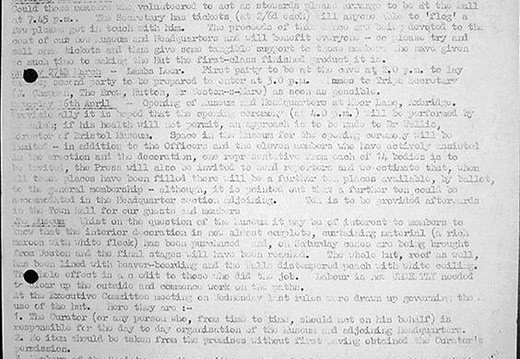 Could those members who volunteered to act as stewards please arrange to be at the Hall
at 7.45 p.m.. The Secretary has tickets (at 2/6d each) will anyone like to 'flog' a
few please get in touch with him. The proceeds of this are being devoted to the
cost of our Museum and Headquarters and will benefit everyone - so please try and
sell some tickets and thus give some tangible support to those members who have given
so much time to making the Hut the first-class finished product it is.
27th March - Lambs Leer. First party to be at the cave at 2.0 p.m. to lay
second party to be prepared to enter at 3.0 p.m. Names to Trips Secretary
Chapman, The Brew, Hutton, Nr Weston-s-Mare) as soon as possible.
Saturday 16th April - Opening of Museum and Headquarters at Meer Lane, Axbridge.
Provisionally it is hoped that the opening ceremony (at 4.0 p.m.) will be performed by
Balch; if his health will not permit, an approach is to be made to Dr Wallis,
Director of Bristol Museum. Space in the Museum for the opening ceremony will be
limited - in addition to the Officers and the eleven members who have actively assisted
in the erection and the decoration, one representative from each of 14 bodies is to
be invited, the Press will also be invited to send reporters and we estimate that, when
all these places have been filled there will be a further ten places available, by ballot,
to the general membership - although, it is pointed out that a further ten could be
accommodated in the Headquarter section adjoining. Tea is to be provided afterwards
in the Town Hall for our guests and members
The Museum Whilst on the question of the Museum it may be of interest to members to
know that the interior decoration is now almost complete, curtaining material (a rich
maroon with white fleck) has been purchased and, on Saturday cases are being brought
from Weston and the final stages will have been reached. The whole hut, roof as well,
has been lined with beaver-boarding and the walls distempered peach with white ceiling.
whole effect is a credit to those who did the job. Labour is now URGENTLY needed
to clear up the outside and commence work on the paths.
At the Executive Committee meeting on Wednesday last rules were drawn up governing the
use of the hut. Here they are :-
1. The Curator (or any person who, from time to time, should act on his behalf) is
responsible for the day to day organisation of the Museum and adjoining Headquarters.
2. No item should be taken from the premises without first having obtained the Curator's
permission.